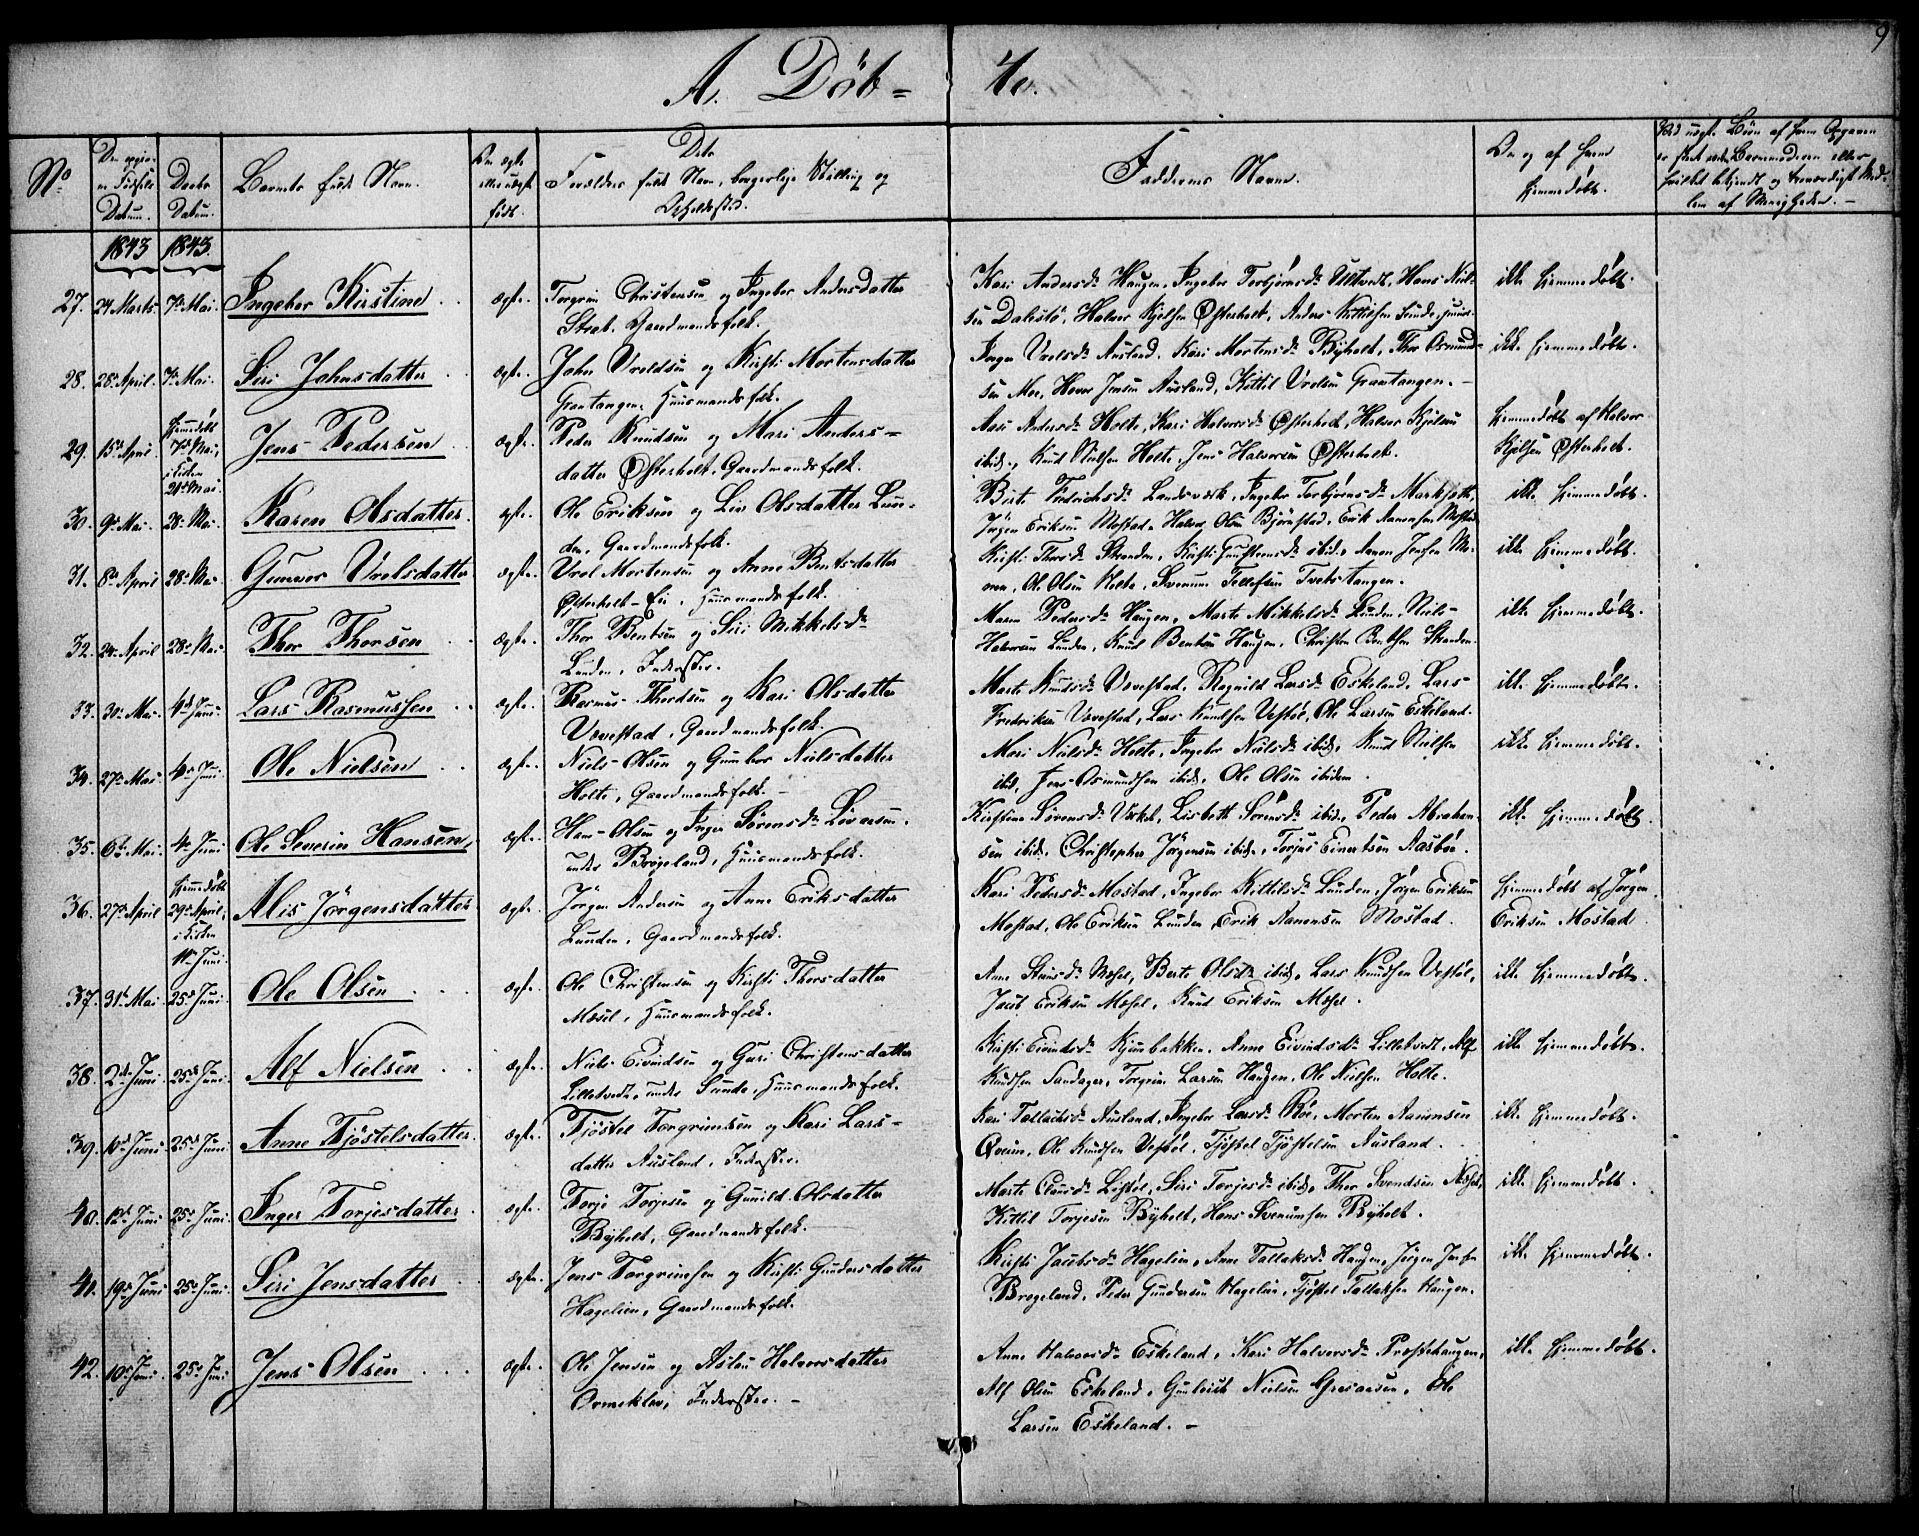 9
A. Døb- te.
No
Den opgivne Fødsels Datum.
Daabs Datum.
Barnets fulde Navn.
Om ægte eller uægte født.
Dets Forældres fulde Navn, borgerlige Stilling og Opholdssted.
Faddernes Navne.
Om og af hvem hjemmedøbt.
1843 1843.
27. 24 Marts. 7de Mai. Ingebor Kirstine ægte. Torgrim Christensen og Ingebor Andersdatter
Gaardmandsfolk.
Kari Andersd: Haugen, Ingebor Torbjørnsd: Hans Niel-
sen Dalestø, Halvor Kjelsen Østerholt, Anders Kittilsen Sunde,
ikke hjemmedøbt.
28. 28de April. 7de Mai. Siri Johnsdatter ægte. John Vroldsen og Kirsti Mortensdatter
Grantangen, Huusmandsfolk.
Inger Vrolsd: Ausland, Kari Mortensd: Byholt, Thor Osmund-
sen Moe, Jensen Ausland, Kittil Vrolsen Grantangen.
ikke hjemmedøbt.
29. 15de April. Hjemmedøbt 7de Mai, i Kirken 21de Mai. Jens Pedersen ægte. Peder Knudsen og Mari Anders-
datter Østerholt, Gaardmandsfolk.
Andersd: Holte, Kari Halvorsd: Østerholt, Halvor Kjelsen
ibid., Knud Nielsen Holte, Jens Halvorsen Østerholt.
hjemmedøbt af Halvor
Kjelsen Østerholt.
30. 9de Mai. 28de Mai. Karen Olsdatter ægte. Ole Eriksen og Liv Olsdatter Lun-
den, Gaardmandsfolk.
Berte Fredrichsd: Landsværk, Ingebor Torbjørnsd:
Jørgen Eriksen Mostad, Halvor Olsen Bjørnstad, Erik Aanonsen Mostad
ikke hjemmedøbt.
31. 8de April 28de Mai. Gunvor Vrolsdatter ægte. Vrol Mortensen og Anne Bentsdatter
Østerholt-Eie, Huusmandsfolk.
Kirsti Thorsd: Stranden, Kirsti ibid., Aanon Jensen
Ole Olsen Holte, Tellefsen Tvetestangen.
ikke hjemmedøbt.
32. 24 April 28de Mai. Thor Thorsen ægte. Thor Bentsen og Siri Mikkelsd:
Lunden, Inderster.
Maren Pedersd: Haugen, Marte Mikkelsd: Lunden, Niels
Halvorsen Lunden, Knud Bentsen Haugen, Christen Bentsen Stranden.
ikke hjemmedøbt.
33. 30de Mai. 4de Juni. Lars Rasmussen ægte. Rasmus Thordsen og Kari Olsdatter
Vævestad, Gaardmandsfolk.
Marte Knudsd: Vævestad, Ragnild Larsd: Eskeland, Lars
Fredriksen Vævestad, Lars Knudsen Vestøl, Ole Larsen Eskeland.
ikke hjemmedøbt.
34. 27de Mai. 4de Juni. Ole Nielsen ægte. Niels Olsen og Gunbor Nielsdatter
Holte, Gaardmandsfolk.
Mari Nielsd: Holte, Ingebor Nielsd: ibid., Knud Nielsen
ibid, Jens Osmundsen ibid, Ole Olsen ibidem.
ikke hjemmedøbt.
35. 6te Mai. 4de Juni Ole Severin Hansen, ægte. Hans Olsen og Inger Sørensd:
under Bregeland, Huusmandsfolk.
Kirstine Sørensd: Lisbeth Sørensd: ibid., Peder Abraham-
sen ibid., Christopher Jørgensen ibid., Torjus Einertsen Aasbøe.
ikke hjemmedøbt.
36. 27de April Hjemmedøbt 29de April, i Kirken Juni. Alis Jørgensdatter ægte. Jørgen Andersen og Anne Eriksdatter
Lunden, Gaardmandsfolk.
Kari Pedersd: Mostad, Ingebor Kittilsd: Lunden, Jørgen Eriksen
Mostad, Ole Eriksen Lunden, Erik Aanonsen Mostad.
hjemmedøbt af Jørgen
Eriksen Mostad.
37. 31te Mai 25de Juni Ole Olsen ægte. Ole Christensen og Kirsti Thorsdatter
Mæsel, Huusmandsfolk.
Anne Mæsel, Berte Olsd: ibid., Lars Knudsen Vestøl,
Jacob Eriksen Mæsel, Knud Eriksen Mæsel.
ikke hjemmedøbt.
38. 2den Juni 25de Juni. Alf Nielsen ægte. Niels Eivindsen og Guri Christensdatter
Lilletvedt, under Sunde, Huusmandsfolk.
Kirsti Eivindsd: Anne Eivindsd: Lilletvedt, Alf
Knudsen Sandager, Torgrim Larsen Haugen, Ole Nielsen Holte.
ikke hjemmedøbt.
39. Juni 25de Juni Anne Tjøstelsdatter ægte. Tjøstel Torgrimsen og Kari Lars-
datter Ausland, Inderster.
Kari Tallachsd: Ausland, Ingebor Larsd: Røe, Morten Aanonsen
Qveim, Ole Knudsen Vestøl, Tjøstel Tjøstelsen Ausland.
ikke hjemmedøbt.
40. 12te Juni 25de Juni. Inger Torjesdatter ægte. Torje Torjesen og Gunild Olsdatter
Byholt, Gaardmandsfolk.
Marte Olausd: Siri Torjesd: ibid., Thor Svendsen Mæsel,
Kittil Torjesen Byholt, Hans Byholt.
ikke hjemmedøbt.
41. 19de Juni 25de Juni. Siri Jensdatter ægte. Jens Torgrimsen og Kirsti Gundersdatter
Hagelien, Gaardmandsfolk.
Kirsti Jacobsd: Hagelien, Anne Tallaksd: Haugen, Jørgen Jensen
Bregeland, Peder Gundersen Hagelien, Tjøstel Tallaksen Haugen.
ikke hjemmedøbt.
42. 10de Juni. 25de Juni Jens Olsen ægte. Ole Jensen og Aslau Halvorsdatter
Ormeklev, Inderster. -
Anne Halvorsd: Eskeland, Kari Halvorsd: Præstehaugen,
Alf Olsen Eskeland, Nielsen Ole
Larsen Eskeland. -
ikke hjemmedøbt.